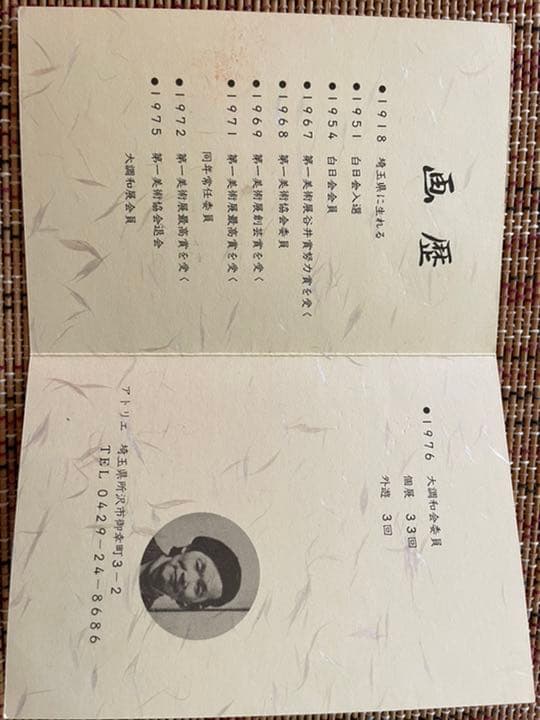 画歴
●1918 埼玉県に生れる
●1951 白日会入選
●1954 白日会会員
●1967 第一美術展谷井賞努力賞を受く
●1968 第一美術協会委員
●1969 第一美術展創芸賞を受く
●1971 第一美術展最高賞を受く
同年常任委員
●1972 第一美術展最高賞を受く
●1975 第一美術協会退会
大調和展会員
●1976 大調和会委員
個展 33回
外遊 3回
アトリエ 埼玉県所沢市御幸町3-2
TEL 0429-24-8686